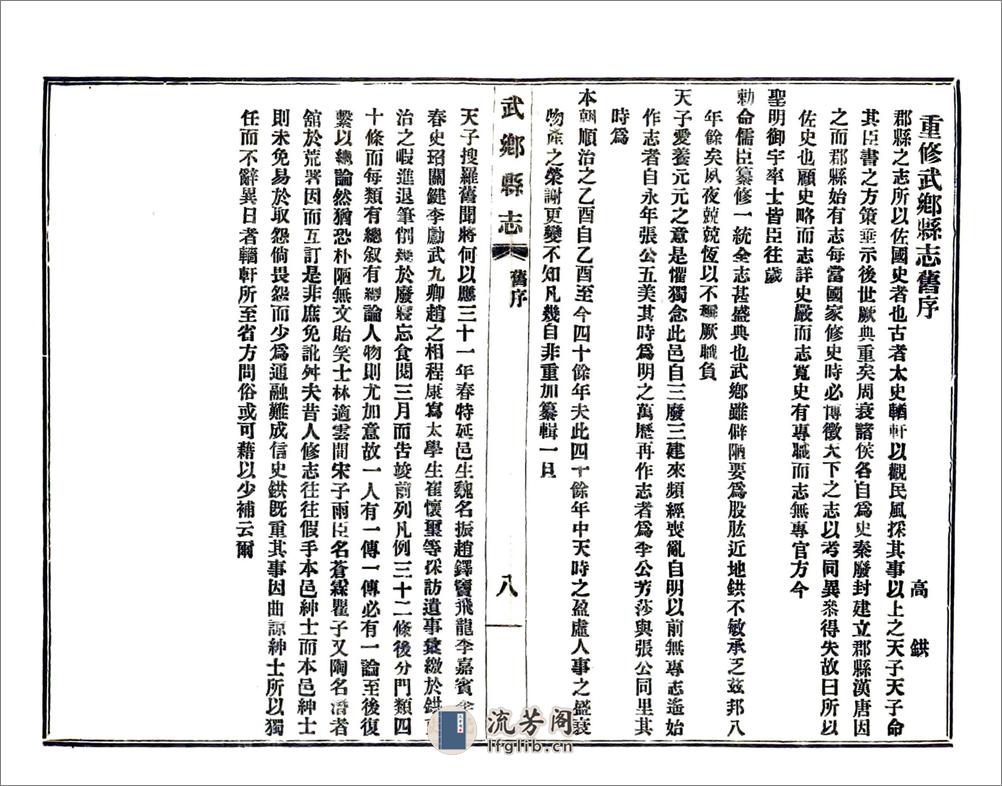 重修武鄉縣志舊序
高鉷
郡縣之志所以佐國史者也古者太史輶軒以觀民風採其事以上之天子天子命
其臣書之方策垂示後世厥典重矣周衰諸侯各自爲史秦廢封建立郡縣漢唐因
之而郡縣始有志每當國家修史時必博徵天下之志以考同異叅得失故曰所以
佐史也顧史略而志詳史嚴而志寬史有專職而志無專官方今
聖明御宇率士皆臣往歲
勅命儒臣纂修一統全志甚盛典也武鄉雖僻陋要爲股肱近地鉷不敏承乏茲邦八
年餘矣夙夜兢兢恆以不稱厥職負
天子愛養元元之意是懼獨念此邑自三廢三建來頻經喪亂自明以前無專志遙始
作志者自永年張公五美其時爲明之萬歷再作志者爲李公芳莎與張公同里其
時爲
本朝順治之乙酉自乙酉至今四十餘年夫此四十餘年中天時之盈虛人事之盛衰
物產之榮謝更變不知凡幾自非重加纂輯一旦
武鄉縣志
舊序
八
天子搜羅舊聞將何以應三十一年春特延邑生魏名振趙鐸竇飛龍李嘉賓
春史玿關鍵李勵武九卿趙之相程康寫太學生崔懷璽等採訪遺事彙繳於鉷
治之暇進退筆削幾於廢寢忘食閱三月而告竣前列凡例三十二條後分門類四
十條而每類有總叙有總論人物則尤加意故一人有一傳一傳必有一論至後復
繫以總論然猶恐朴陋無文貽笑士林適雲間宋子雨臣名蒼霖瞿子又陶名濳者
舘於荒署因而互訂是非庶免訛舛夫昔人修志往往假手本邑紳士而本邑紳士
則未免易於取怨倘畏怨而少爲通融難成信史鉷旣重其事因曲諒紳士所以獨
任而不辭異日者輶軒所至省方問俗或可藉以少補云爾
流芳阁
lfglib.cn